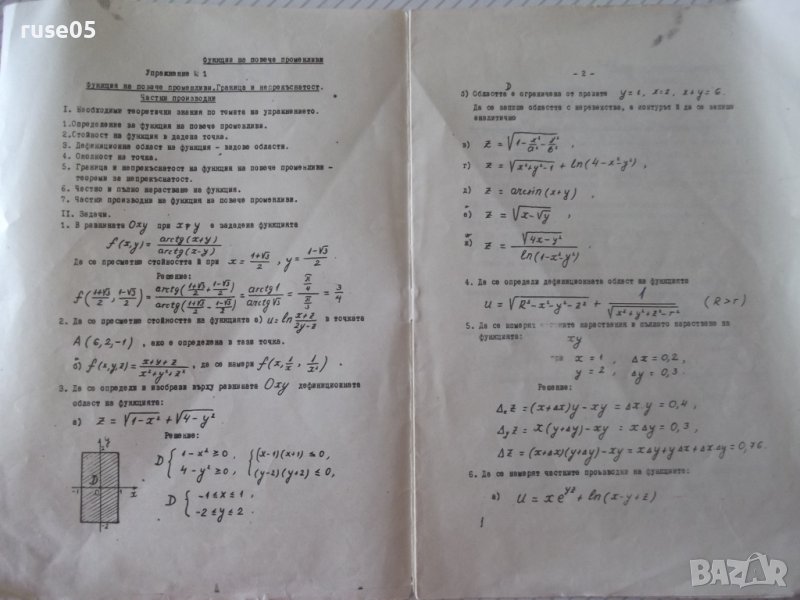 ruse05
функции на повече променливи
Упражнение № 1
Функция на повече променливи.Граница и непрекъснатост.
Частни производни
I. Необходими теоретични знания по темата на упражнението.
1.Определение за функция на повече променливи.
2.Стойност на функция в дадена точка.
3. Дефиниционна област на функция - видове области.
4. Околност на точка.
5. Граница и непрекъснатост на функция на повече променливи -
теореми за непрекъснатост.
6. Частно и пълно нарастване на функция.
7. Частни производни на функция на повече променливи.
II. Задачи.
1. В равнината Oxy при x≠y е зададена функцията
f(x,y) = arctg(x+y) / arctg(x-y)
Да се пресметне стойността й при x = (1+√3)/2 , y = (1-√3)/2 .
Решение:
f((1+√3)/2 , (1-√3)/2) = arctg((1+√3)/2 + (1-√3)/2) / arctg((1+√3)/2 - (1-√3)/2) = arctg1 / arctg√3 = (π/4) / (π/3) = 3/4
2. Да се пресметне стойността на функцията а) u = ln (x+z)/(2y-z) в точката
A(6,2,-1) , ако е определена в тази точка.
б) f(x,y,z) = (x+y+z)/(x²+y²+z²) , да се намери f(x, 1/x, 1/x²) .
3. Да се определи и изобрази върху равнината Oxy дефиниционната
област на функцията:
а) z = √(1-x²) + √(4-y²)
Решение:
D { 1-x² ≥ 0 , 4-y² ≥ 0 , { (x-1)(x+1) ≤ 0, (y-2)(y+2) ≤ 0,
D { -1 ≤ x ≤ 1 , -2 ≤ y ≤ 2 .
y 2 D -1 0 1 x -2
- 2 -
D
б) Областта е ограничена от правите y=1, x=2, x+y=6.
Да се запише областта с неравенства, а контурът й да се запише
аналитично
в) z = √(1 - x²/a² - y²/b²) ,
г) z = √(x²+y²-1) + ln(4-x²-y²) ,
д) z = arcsin(x+y) ,
е) z = √(x-√y) ,
ж) z = √(4x-y²) / ln(1-x²-y²)
4. Да се определи дефиниционната област на функцията
u = √(R²-x²-y²-z²) + 1/√(x²+y²+z²-r²) (R>r)
5. Да се намерят частните нараствания и пълното нарастване на
функцията: xy
при x = 1 , Δx = 0,2,
y = 2 , Δy = 0,3.
Решение:
Δₓz = (x+Δx)y - xy = Δx y = 0,4 ,
Δᵧz = x(y+Δy) - xy = xΔy = 0,3 ,
Δz = (x+Δx)(y+Δy) - xy = xΔy+yΔx+ΔxΔy = 0,76.
6. Да се намерят частните производни на функциите:
а) u = xe^{yz} + ln(x-y+z)
BAZAR